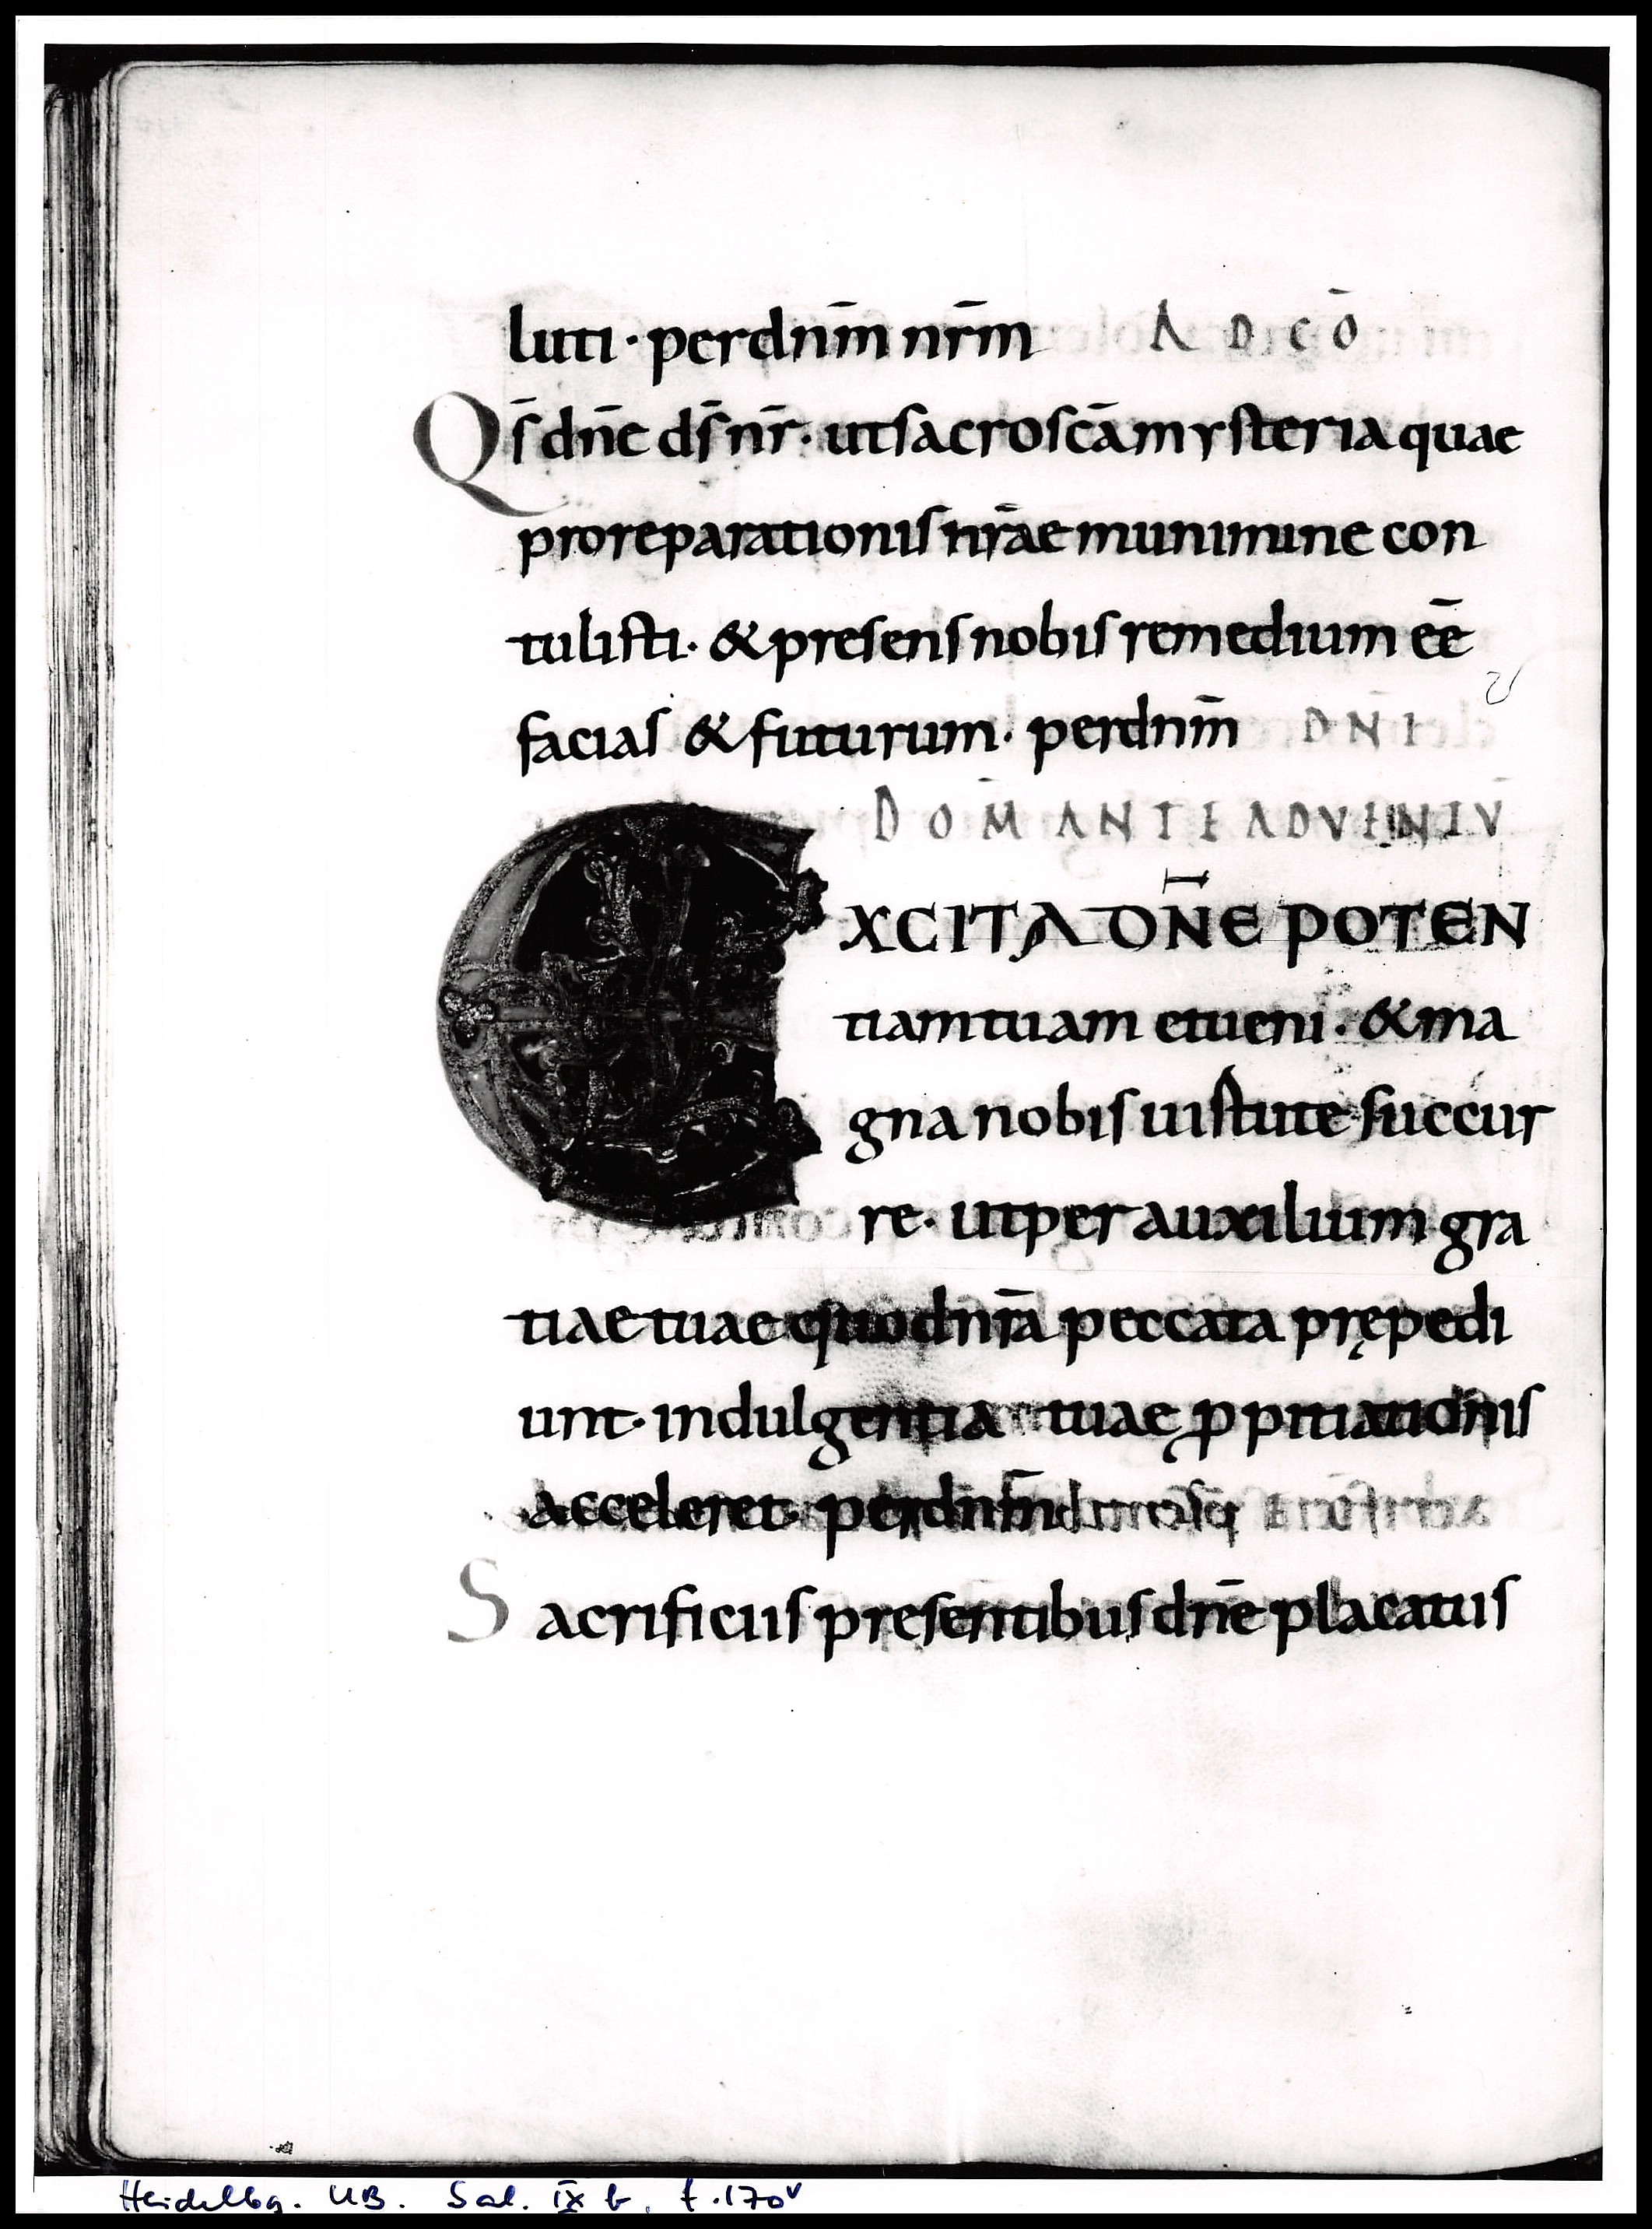 luti · per dnm̄ nrm̄ AD CŌ
Qs̄ dnē ds̄ nr̄ · ut sacroscā mysteria quae
pro reparationis nrāe munimine con
tulisti · & presens nobis remedium eē
facias & futurum · per dnm̄ DNI
DOM̄ ANTE ADVENTV̄
EXCITA DN̄E POTEN
tiam tuam et ueni · & ma
gna nobis uirtute succur
re · ut per auxilium gra
tiae tuae quod nrā peccata prępedi
unt · indulgentia tuae ꝓpitiationis
acceleret · per dnm̄
Sacrificiis presentibus dnē placatus
Heidelbg. UB. Sal. IX b, f. 170v